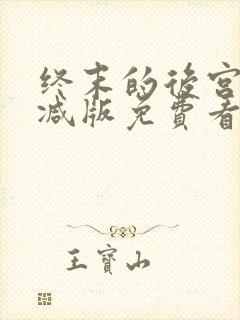 终末的後宫
减版免費看
王寶山